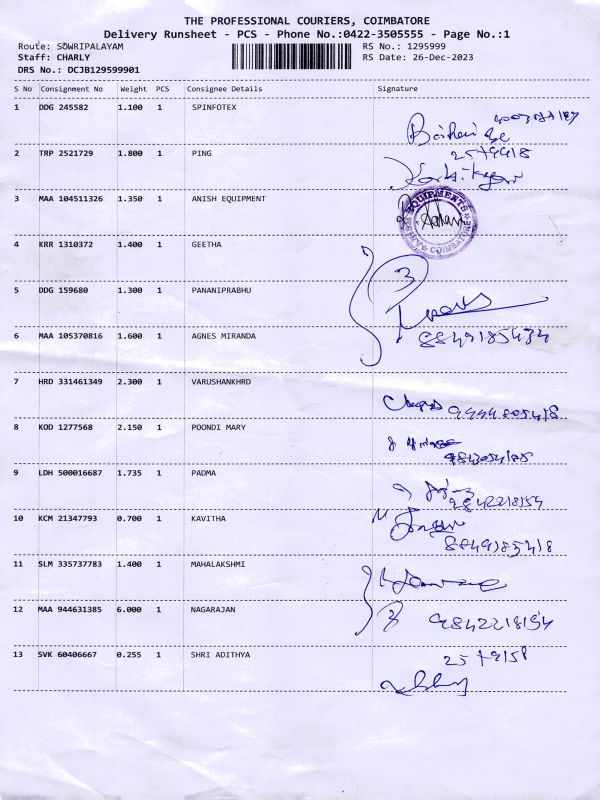 THE PROFESSIONAL COURIERS, COIMBATORE
Delivery Runsheet - PCS - Phone No.:0422-3505555 - Page No.:1
Route: SOWRIPALAYAM RS No.: 1295999
Staff: CHARLY RS Date: 26-Dec-2023
DRS No.: DCJB129599901
S No Consignment No Weight PCS Consignee Details Signature
1 DDG 245582 1.100 1 SPINFOTEX
2 TRP 2521729 1.800 1 PING
3 MAA 104511326 1.350 1 ANISH EQUIPMENT
EQUIPMENTS
COIMBATORE
4 KRR 1310372 1.400 1 GEETHA
3
5 DDG 159680 1.300 1 PANANIPRABHU
6 MAA 105370816 1.600 1 AGNES MIRANDA
8849185434
7 HRD 331461349 2.300 1 VARUSHANKHRD
8 KOD 1277568 2.150 1 POONDI MARY
9 LDH 500016687 1.735 1 PADMA
9842218154
10 KCM 21347793 0.700 1 KAVITHA
8849185418
11 SLM 335737783 1.400 1 MAHALAKSHMI
12 MAA 944631385 6.000 1 NAGARAJAN
9842218154
13 SVK 60406667 0.255 1 SHRI ADITHYA